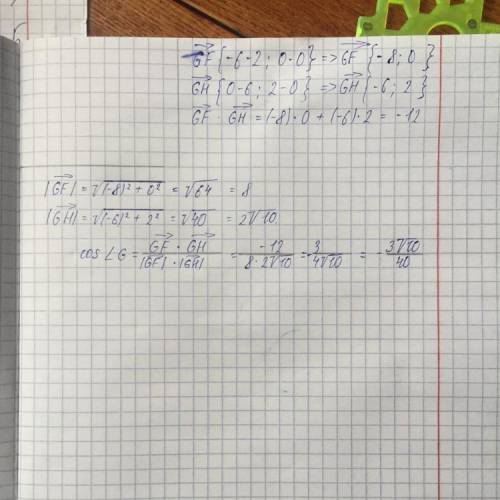 GF {-6-2; 0-0} => GF {-8; 0}
GH {0-6; 2-0} => GH {-6; 2}
GF · GH = (-8)·0 + (-6)·2 = -12
|GF| = √((-8)² + 0²) = √64 = 8
|GH| = √((-6)² + 2²) = √40 = 2√10
cos∠G = GF · GH / |GF|·|GH| = -12 / 8·2√10 = -3 / 4√10 = -3√10 / 40